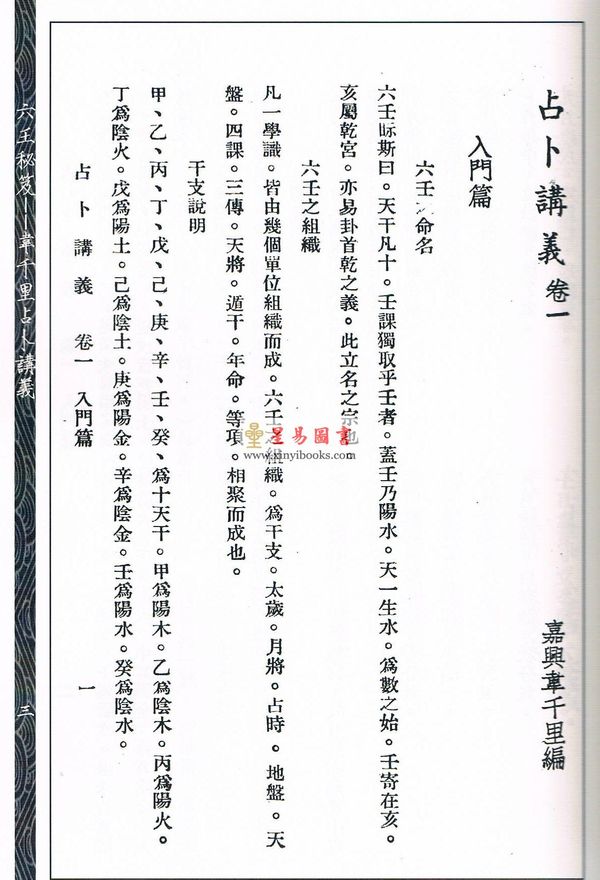 占卜講義 卷一
嘉興韋千里編
入門篇
六壬之命名
六壬眎斯曰。天干凡十。壬課獨取乎壬者。蓋壬乃陽水。天一生水。爲數之始。壬寄在亥。
亥屬乾宮。亦易卦首乾之義。此立名之宗也
六壬之組織
凡一學識。皆由幾個單位組織而成。六壬之組織。爲干支。太歲。月將。占時。地盤。天
盤。四課。三傳。天將。遁干。年命。等項。相聚而成也。
干支說明
甲、乙、丙、丁、戊、己、庚、辛、壬、癸、爲十天干。甲爲陽木。乙爲陰木。丙爲陽火。
丁爲陰火。戊爲陽土。己爲陰土。庚爲陽金。辛爲陰金。壬爲陽水。癸爲陰水。
占卜講義 卷一 入門篇 一
六壬秘笈—韋千里占卜講義 三
星易圖書
www.xinyibooks.com